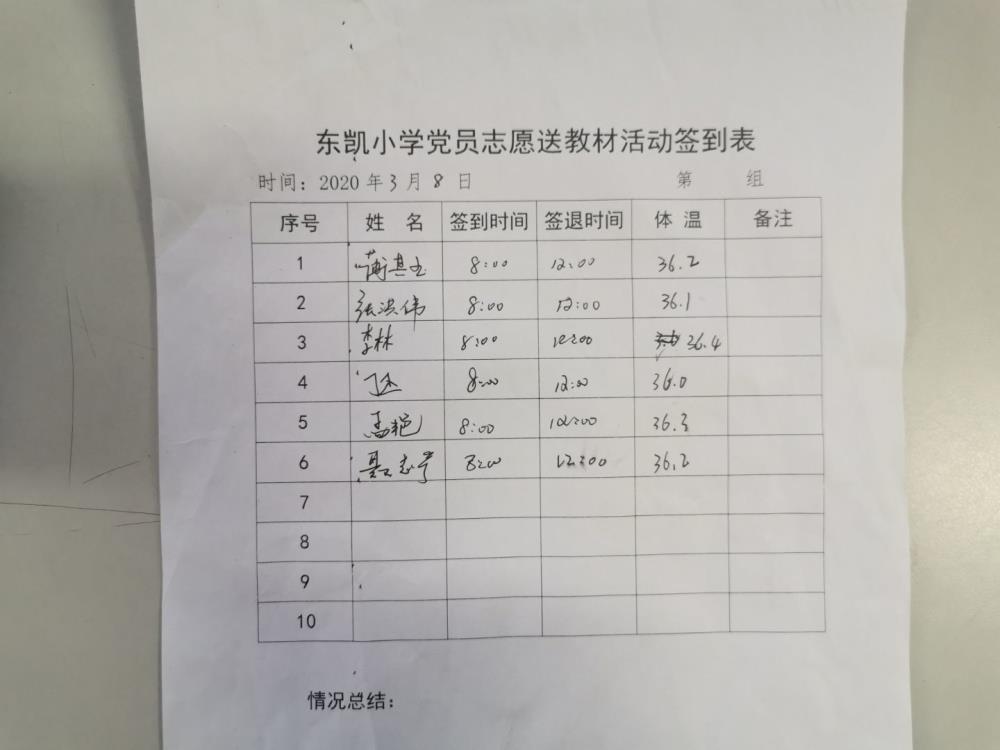 东凯小学党员志愿送教材活动签到表
时间：2020年3月8日 第 组
序号 姓 名 签到时间 签退时间 体 温 备注
1 8:00 12:00 36.2
2 张洪伟 8:00 12:00 36.1
3 李林 8:00 12:00 36.4
4 8:00 12:00 36.0
5 马艳 8:00 12:00 36.3
6 8:00 12:00 36.2
7
8
9
10
情况总结：